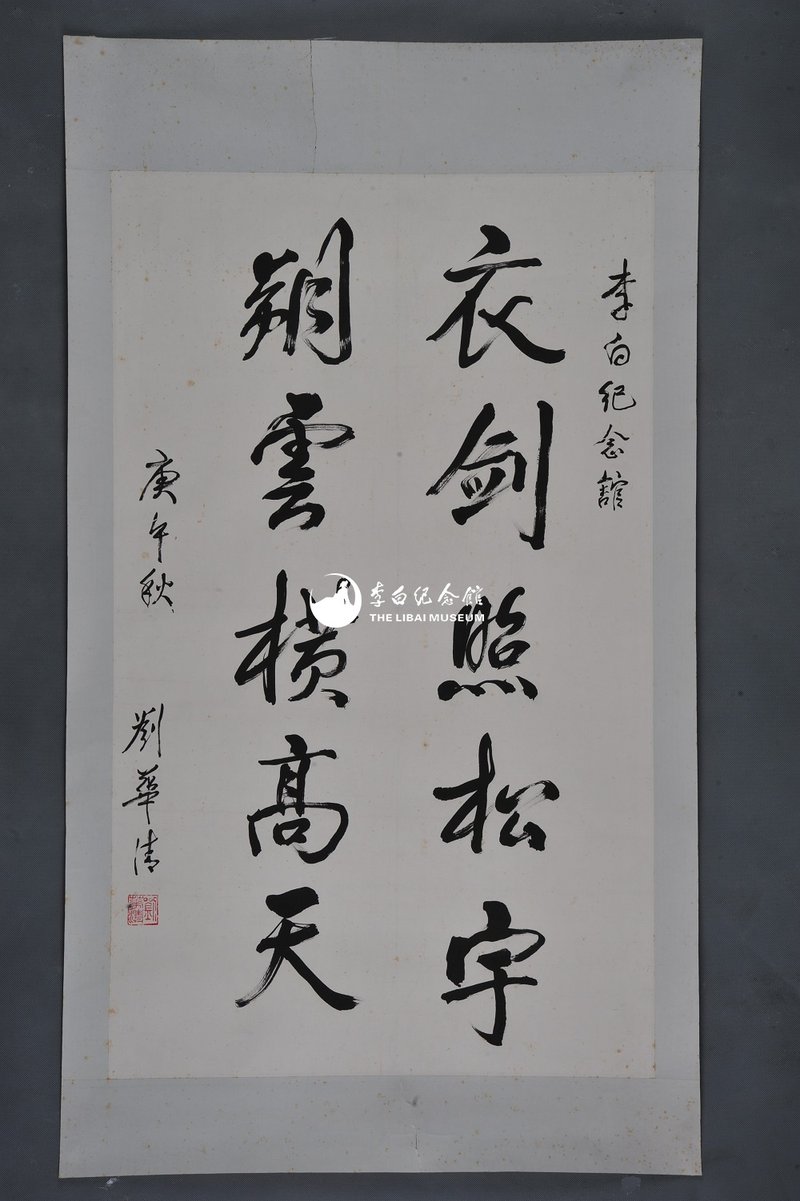 李白纪念舘
衣剑照松宇
朔雲横高天
庚午秋
劉華清
李白纪念館
THE LIBAI MUSEUM